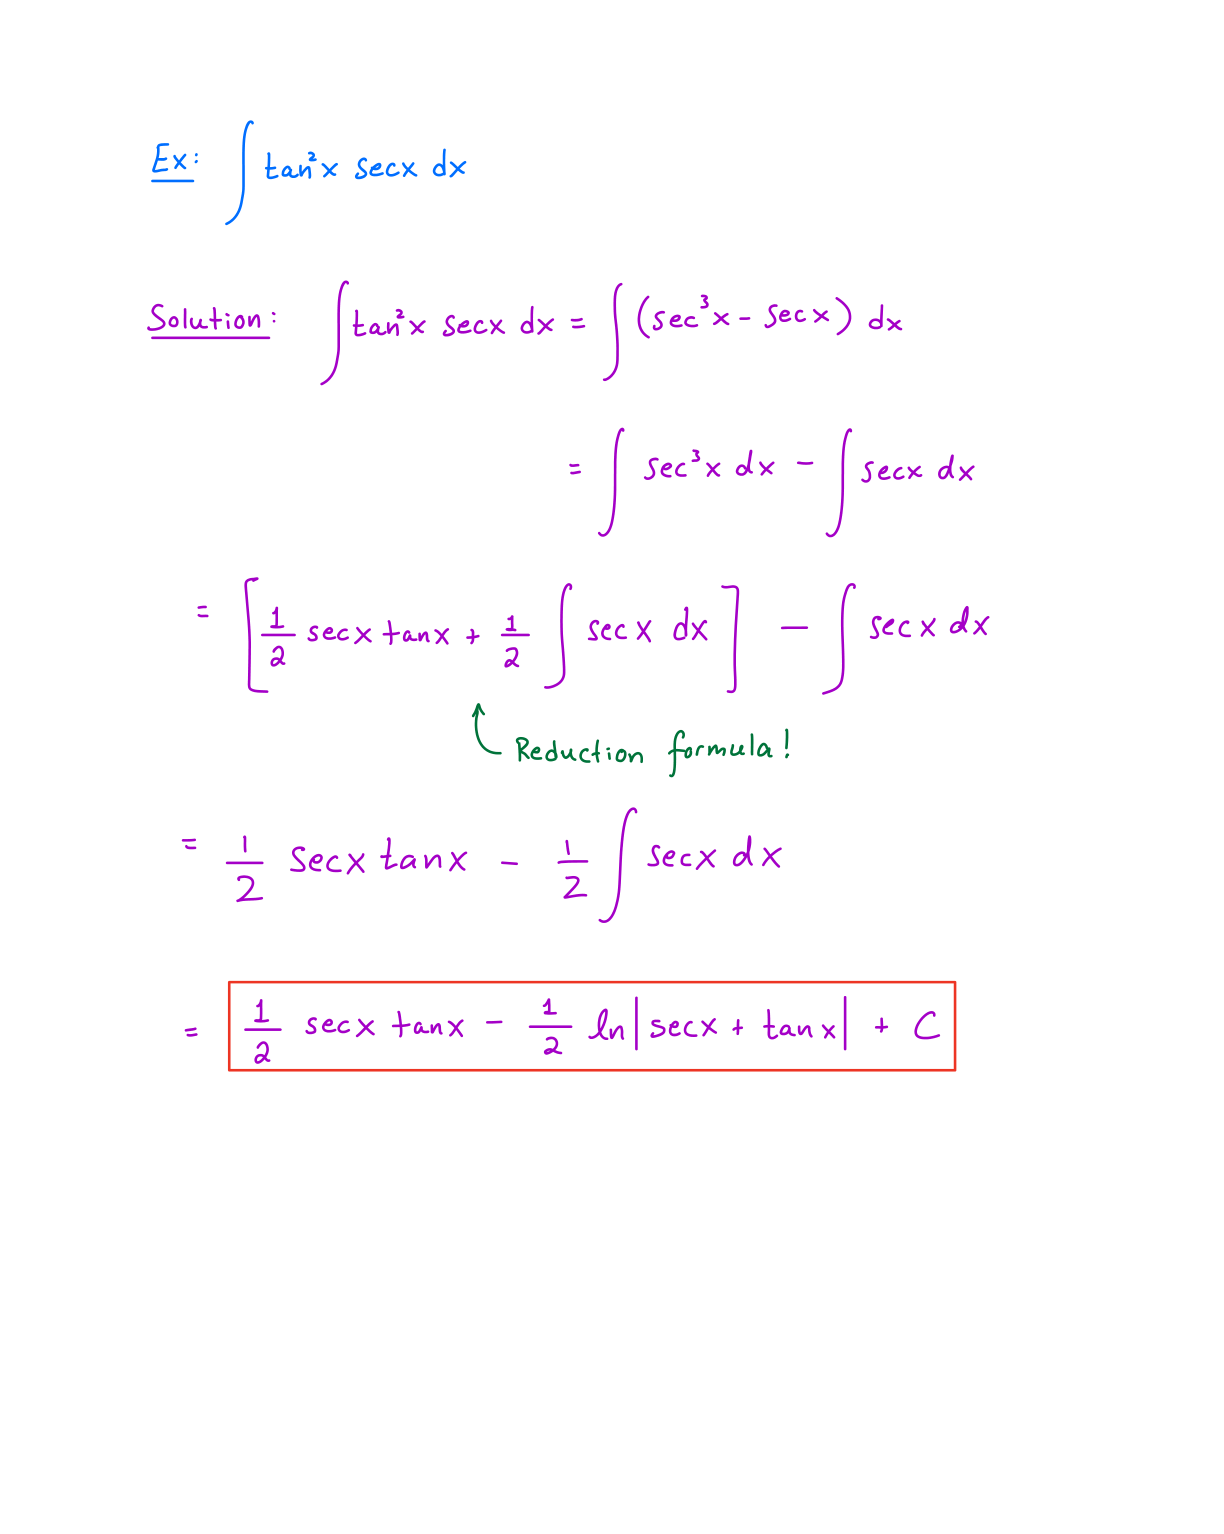 Ex: ∫ tan²x secx dx
Solution: ∫ tan²x secx dx = ∫ (sec³x - secx) dx
= ∫ sec³x dx - ∫ secx dx
= [1/2 secx tanx + 1/2 ∫ secx dx] - ∫ secx dx
Reduction formula!
= 1/2 secx tanx - 1/2 ∫ secx dx
= 1/2 secx tanx - 1/2 ln|secx + tanx| + C